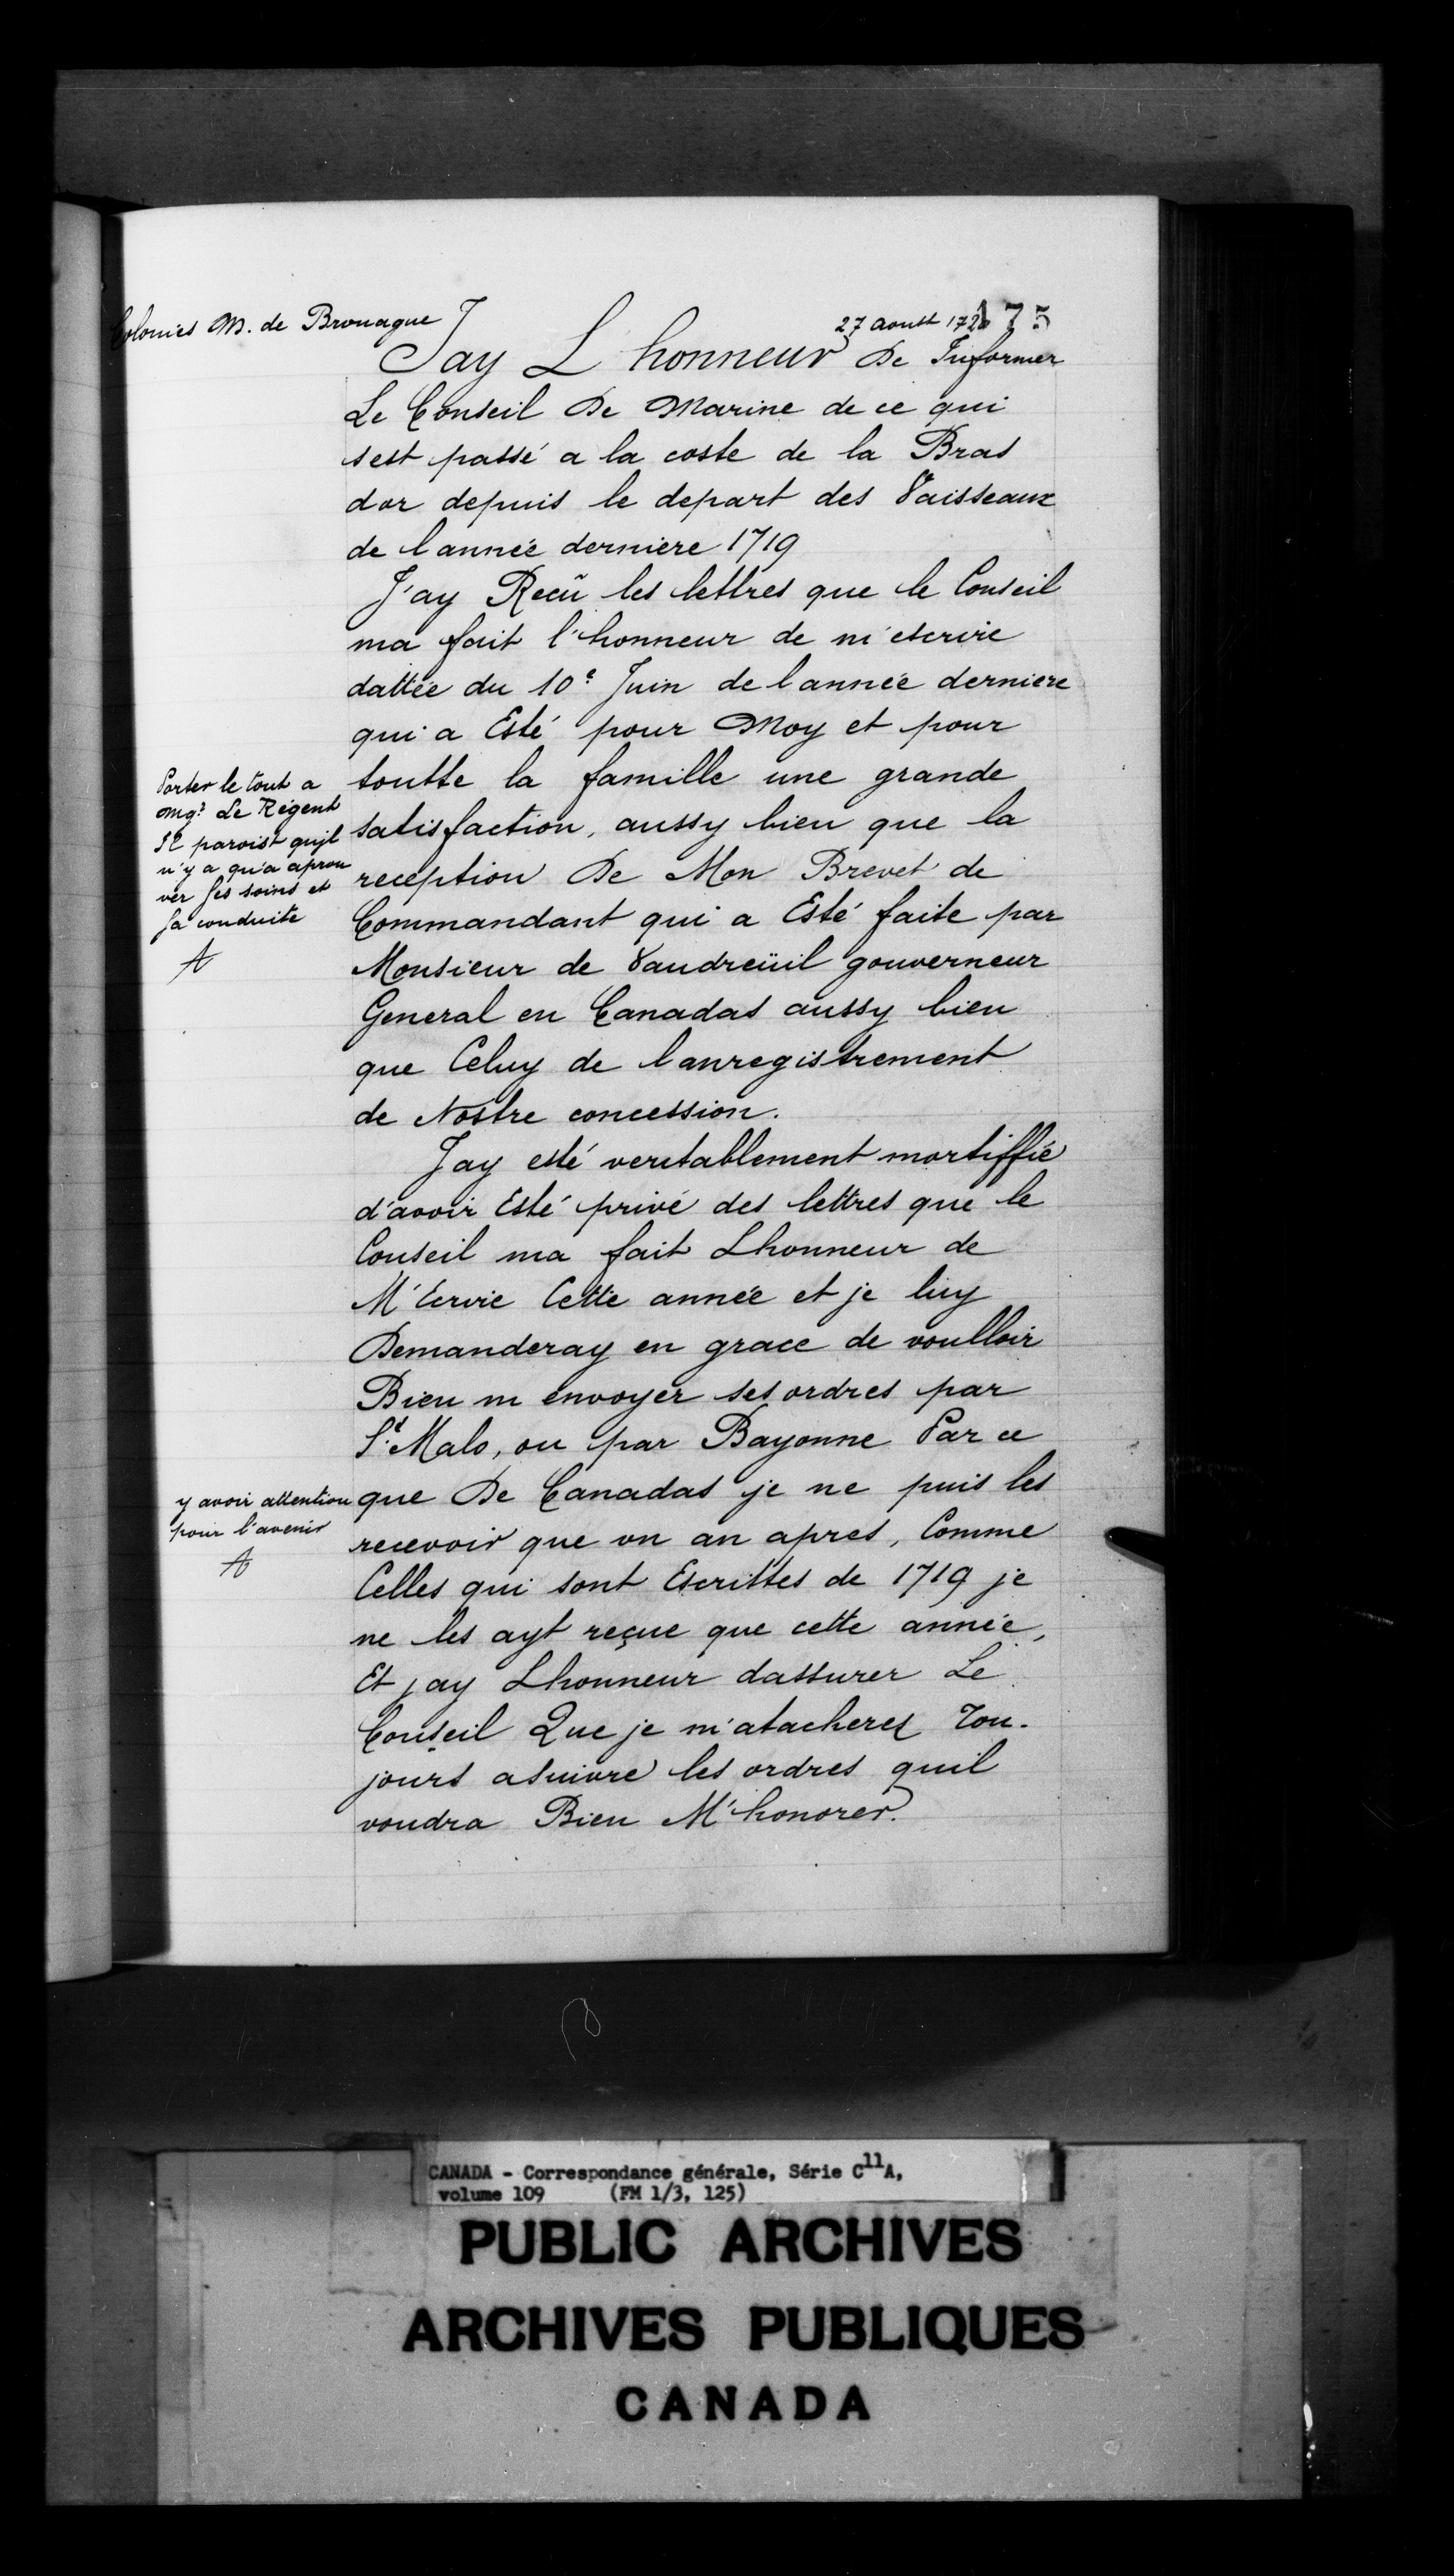 Colonies M. de Brouague
27 Aoust 1720
175
Jay L honneur De Informer
Le Conseil De Marine de ce qui
sest passé a la coste de la Bras
dor depuis le depart des Vaisseaux
de lannée derniere 1719
J'ay Reçu les lettres que le Conseil
ma fait l'honneur de m'escrire
dattée du 10e Juin de lannée derniere
qui a Esté pour Moy et pour
toutte la famille une grande
satisfaction, aussy bien que la
reception De Mon Brevet de
Commandant qui a Esté faite par
Monsieur de Vaudreüil gouverneur
General en Canadas aussy bien
que Celuy de lanregistrement
de Nostre concession.
Porter le tout a
Mgr Le Régent
Il paroist qu'jl
n'y a qu'a aprou
ver ses soins et
sa conduite
A
Jay esté veritablement mortiffié
d'avoir Esté privé des lettres que le
Conseil ma fait Lhonneur de
M'Ecrire Cette année et je luy
Demanderay en grace de voulloir
Bien m envoyer ses ordres par
St Malo, ou par Bayonne Par ce
que De Canadas je ne puis les
recevoir que un an apres, Comme
Celles qui sont Escrittes de 1719 je
ne les ayt reçue que cette année,
Et jay Lhonneur dassurer Le
Conseil Que je m'atacherez Tou-
jours asuivre les ordres quil
voudra Bien M'honorer.
y avoir attention
pour l'avenir
A
CANADA - Correspondance générale, Série C11A,
volume 109 (FM 1/3, 125)
PUBLIC ARCHIVES
ARCHIVES PUBLIQUES
CANADA